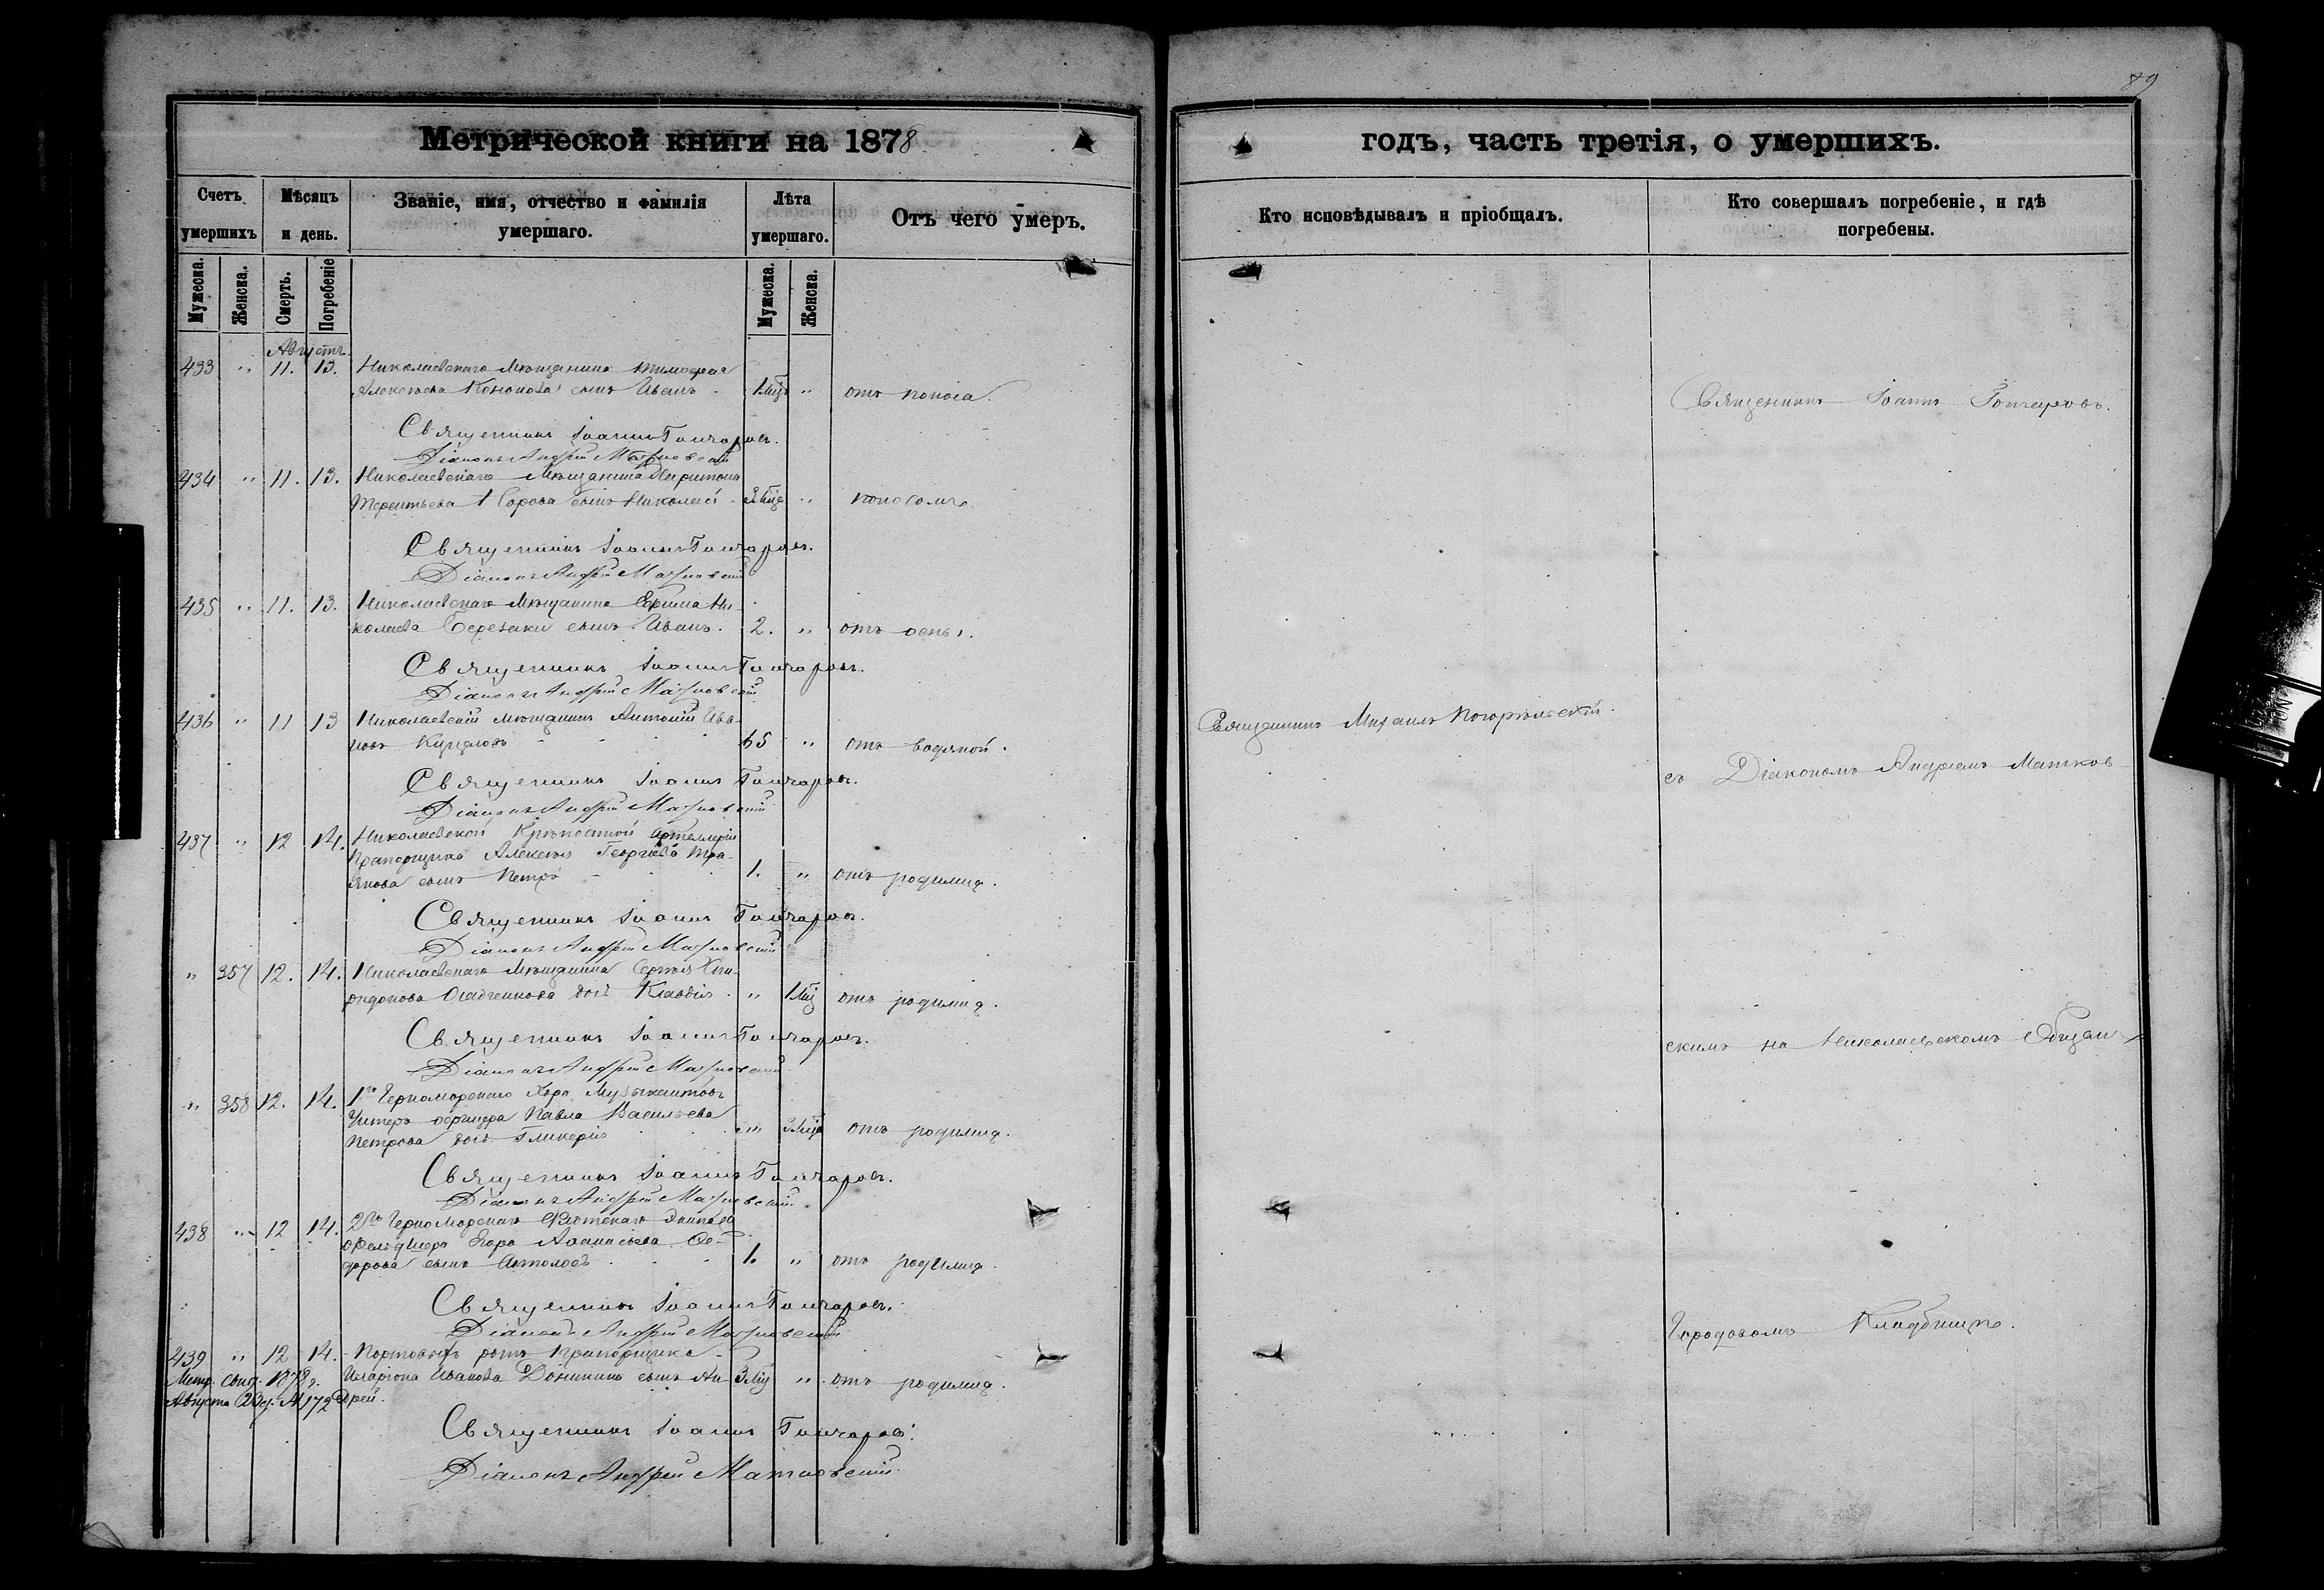 89
Метрической книги на 1878
годъ, часть третія, о умершихъ.
Счетъ умершихъ
Мѣсяцъ и день.
Званіе, имя, отчество и фамилія умершаго.
Лѣта умершаго.
Отъ чего умеръ.
Кто исповѣдывалъ и пріобщалъ.
Кто совершалъ погребеніе, и гдѣ погребены.
Мужеска.
Женска.
Смерть.
Погребеніе
Мужеска.
Женска.
Августъ
433 " 11. 13. Николаевскаго Мѣщанина Тимофея
Алексѣева Кононова сынъ Иванъ 1 мѣц " отъ поноса.
Священникъ Іоаннъ Гончаровъ.
Діаконъ Андрей Матковскій
434 " 11. 13. Николаевскаго Мѣщанина Харитона
Терентьева сынъ Николай " поносомъ
Священникъ Іоаннъ Гончаровъ.
Діаконъ Андрей Матковскій
435 " 11. 13. Николаевскаго Мѣщанина Ефима Ни-
колаева Березаки сынъ Иванъ. 2. " отъ оспы.
Священникъ Іоаннъ Гончаровъ.
Діаконъ Андрей Матковскій
436 " 11 13 Николаевскій мѣщанинъ Антоній Ива-
новъ 65 " отъ водяной.
Священникъ Іоаннъ Гончаровъ.
Діаконъ Андрей Матковскій
437 " 12 14. Николаевской Крѣпостной Артиллеріи
Прапорщика Алексѣя Георгіева Тро-
янова сынъ Петръ 1. " отъ родимца.
Священникъ Іоаннъ Гончаровъ.
Діаконъ Андрей Матковскій
" 357 12. 14. Николаевскаго Мѣщанина Сергѣя Спи-
ридонова дочь Клавдія " 1 мѣц отъ родимца.
Священникъ Іоаннъ Гончаровъ.
Діаконъ Андрей Матковскій
" 358 12. 14. 1го Черноморскаго Хора Музыкантовъ
Унтеръ офицера Павла Васильева
Петрова дочь Гликерія " 3 мѣца отъ родимца.
Священникъ Іоаннъ Гончаровъ.
Діаконъ Андрей Матковскій
438 " 12 14. 2го Черноморскаго Флотскаго Экипажа
фельдшера Егора Афанасьева Фе-
дорова сынъ 1. " отъ родимца.
Священникъ Іоаннъ Гончаровъ.
Діаконъ Андрей Матковскій
439 " 12 14. Портовыхъ ротъ прапорщика
Иларіона Иванова Доникина сынъ Ан- 3 мѣц " отъ родимца.
дрей.
Метр. свид. 1878 г.
Августа 23 д. № 172
Священникъ Іоаннъ Гончаровъ.
Діаконъ Андрей Матковскій.
Священникъ Михаилъ Погорѣльскій.
Священникъ Іоаннъ Гончаровъ.
съ Діакономъ Андреемъ Матков-
скимъ на Николаевскомъ Общем
Городовомъ Кладбищѣ.